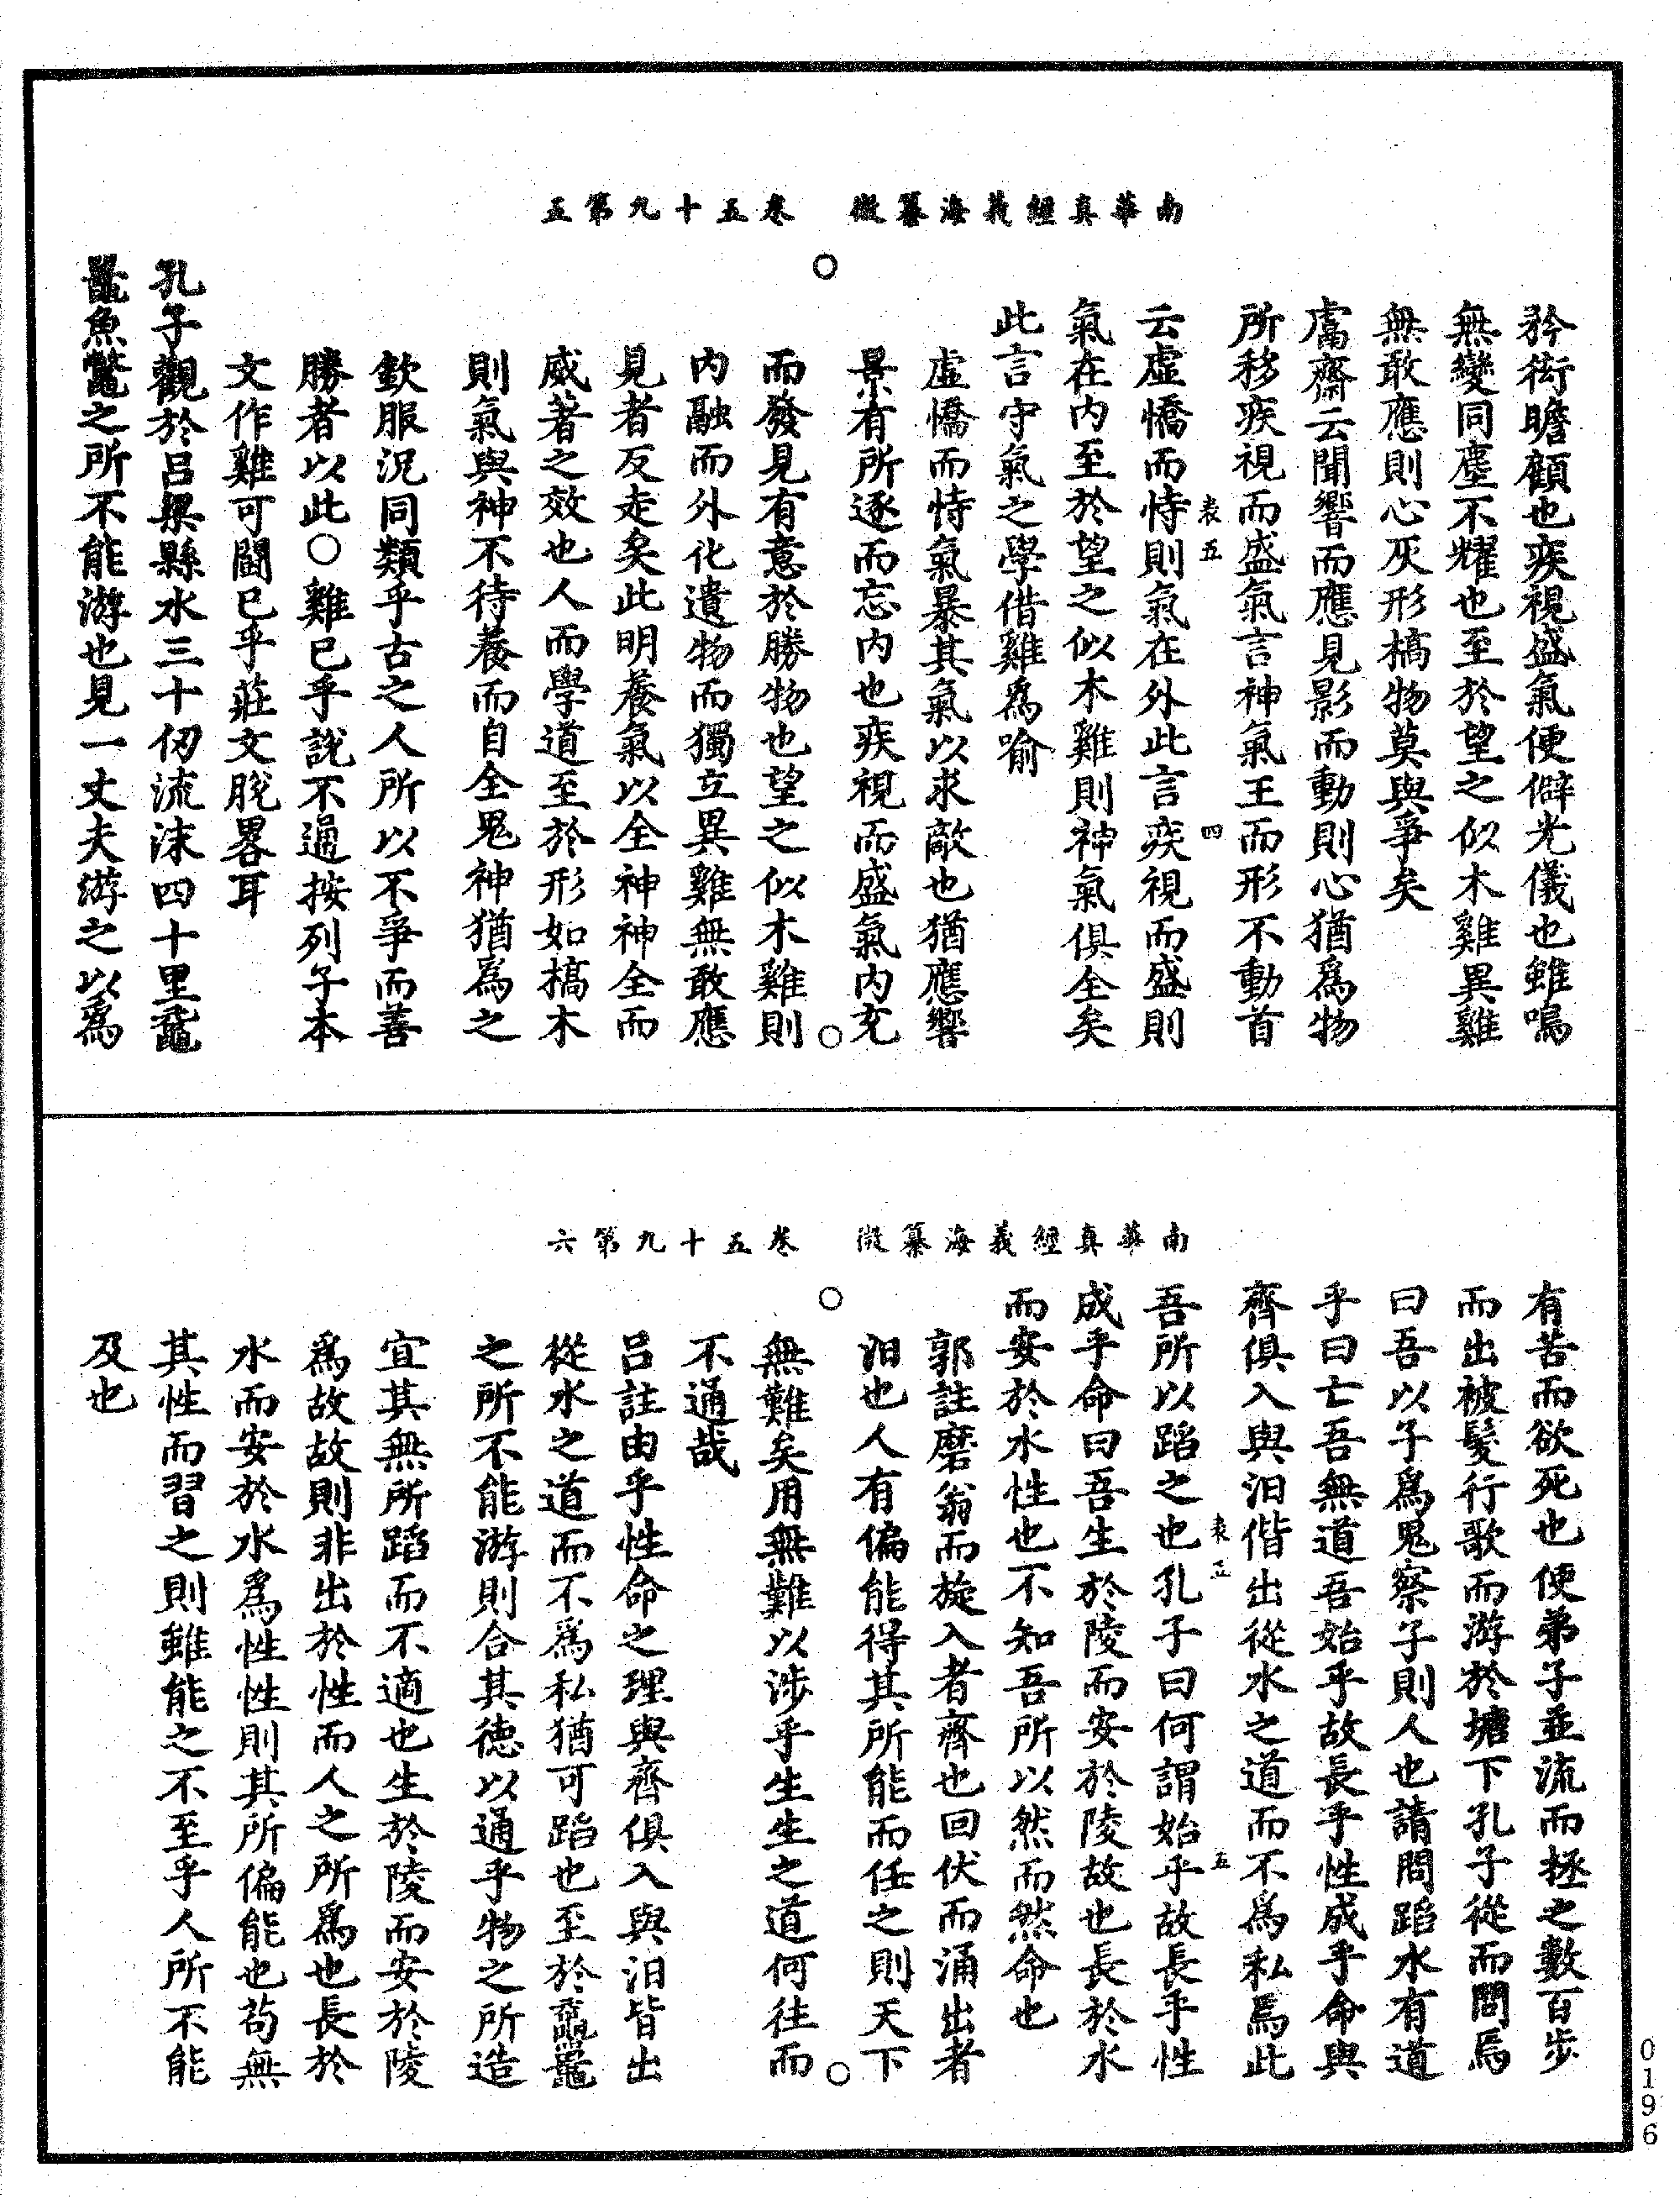 南華真經義海纂微　卷五十九第五
矜衒瞻顧也疾視盛氣便僻光儀也雖鳴
無變同塵不耀也至於望之似木雞異雞
無敢應則心灰形槁物莫與爭矣
鬳齋云聞響而應見影而動則心猶爲物
所移疾視而盛氣言神氣王而形不動首
袁五　四
云虛憍而恃則氣在外此言疾視而盛則
氣在内至於望之似木雞則神氣俱全矣
此言守氣之學借雞爲喻
虛憍而恃氣暴其氣以求敵也猶應響
景有所逐而忘内也疾視而盛氣内充
而發見有意於勝物也望之似木雞則
内融而外化遺物而獨立異雞無敢應
見者反走矣此明養氣以全神神全而
威著之效也人而學道至於形如槁木
則氣與神不待養而自全鬼神猶爲之
欽服況同類乎古之人所以不爭而善
勝者以此○雞已乎說不通按列子本
文作雞可鬬已乎莊文脫畧耳
孔子觀於呂梁縣水三十仞流沫四十里黿
鼉魚鼈之所不能游也見一丈夫游之以爲
南華真經義海纂微　卷五十九第六
有苦而欲死也使弟子並流而拯之數百步
而出被髮行歌而游於塘下孔子從而問焉
曰吾以子爲鬼察子則人也請問蹈水有道
乎曰亡吾無道吾始乎故長乎性成乎命與
齊俱入與汨偕出從水之道而不爲私焉此
袁五　五
吾所以蹈之也孔子曰何謂始乎故長乎性
成乎命曰吾生於陵而安於陵故也長於水
而安於水性也不知吾所以然而然命也
郭註磨翁而旋入者齊也回伏而涌出者
汨也人有偏能得其所能而任之則天下
無難矣用無難以涉乎生生之道何往而
不通哉
呂註由乎性命之理與齊俱入與汨皆出
從水之道而不爲私猶可蹈也至於黿鼉
之所不能游則合其德以通乎物之所造
宜其無所蹈而不適也生於陵而安於陵
爲故故則非出於性而人之所爲也長於
水而安於水爲性性則其所偏能也苟無
其性而習之則雖能之不至乎人所不能
及也
0196